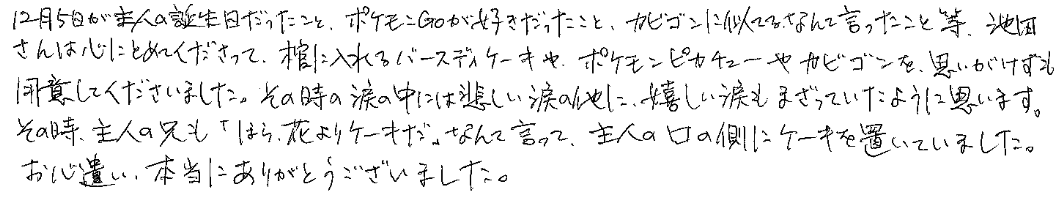 12月5日が主人の誕生日だったこと、ポケモンGoが好きだったこと、カビゴンに似てるなんて言ったこと等、池田
さんは心にとめてくださって、棺に入れるバースディケーキや、ポケモンピカチューやカビゴンを、思いがけずも
用意してくださいました。その時の涙の中には悲しい涙の他に、嬉しい涙もまざっていたように思います。
その時、主人の兄も「ほら、花よりケーキだ」なんて言って、主人の口の側にケーキを置いていました。
お心遣い、本当にありがとうございました。